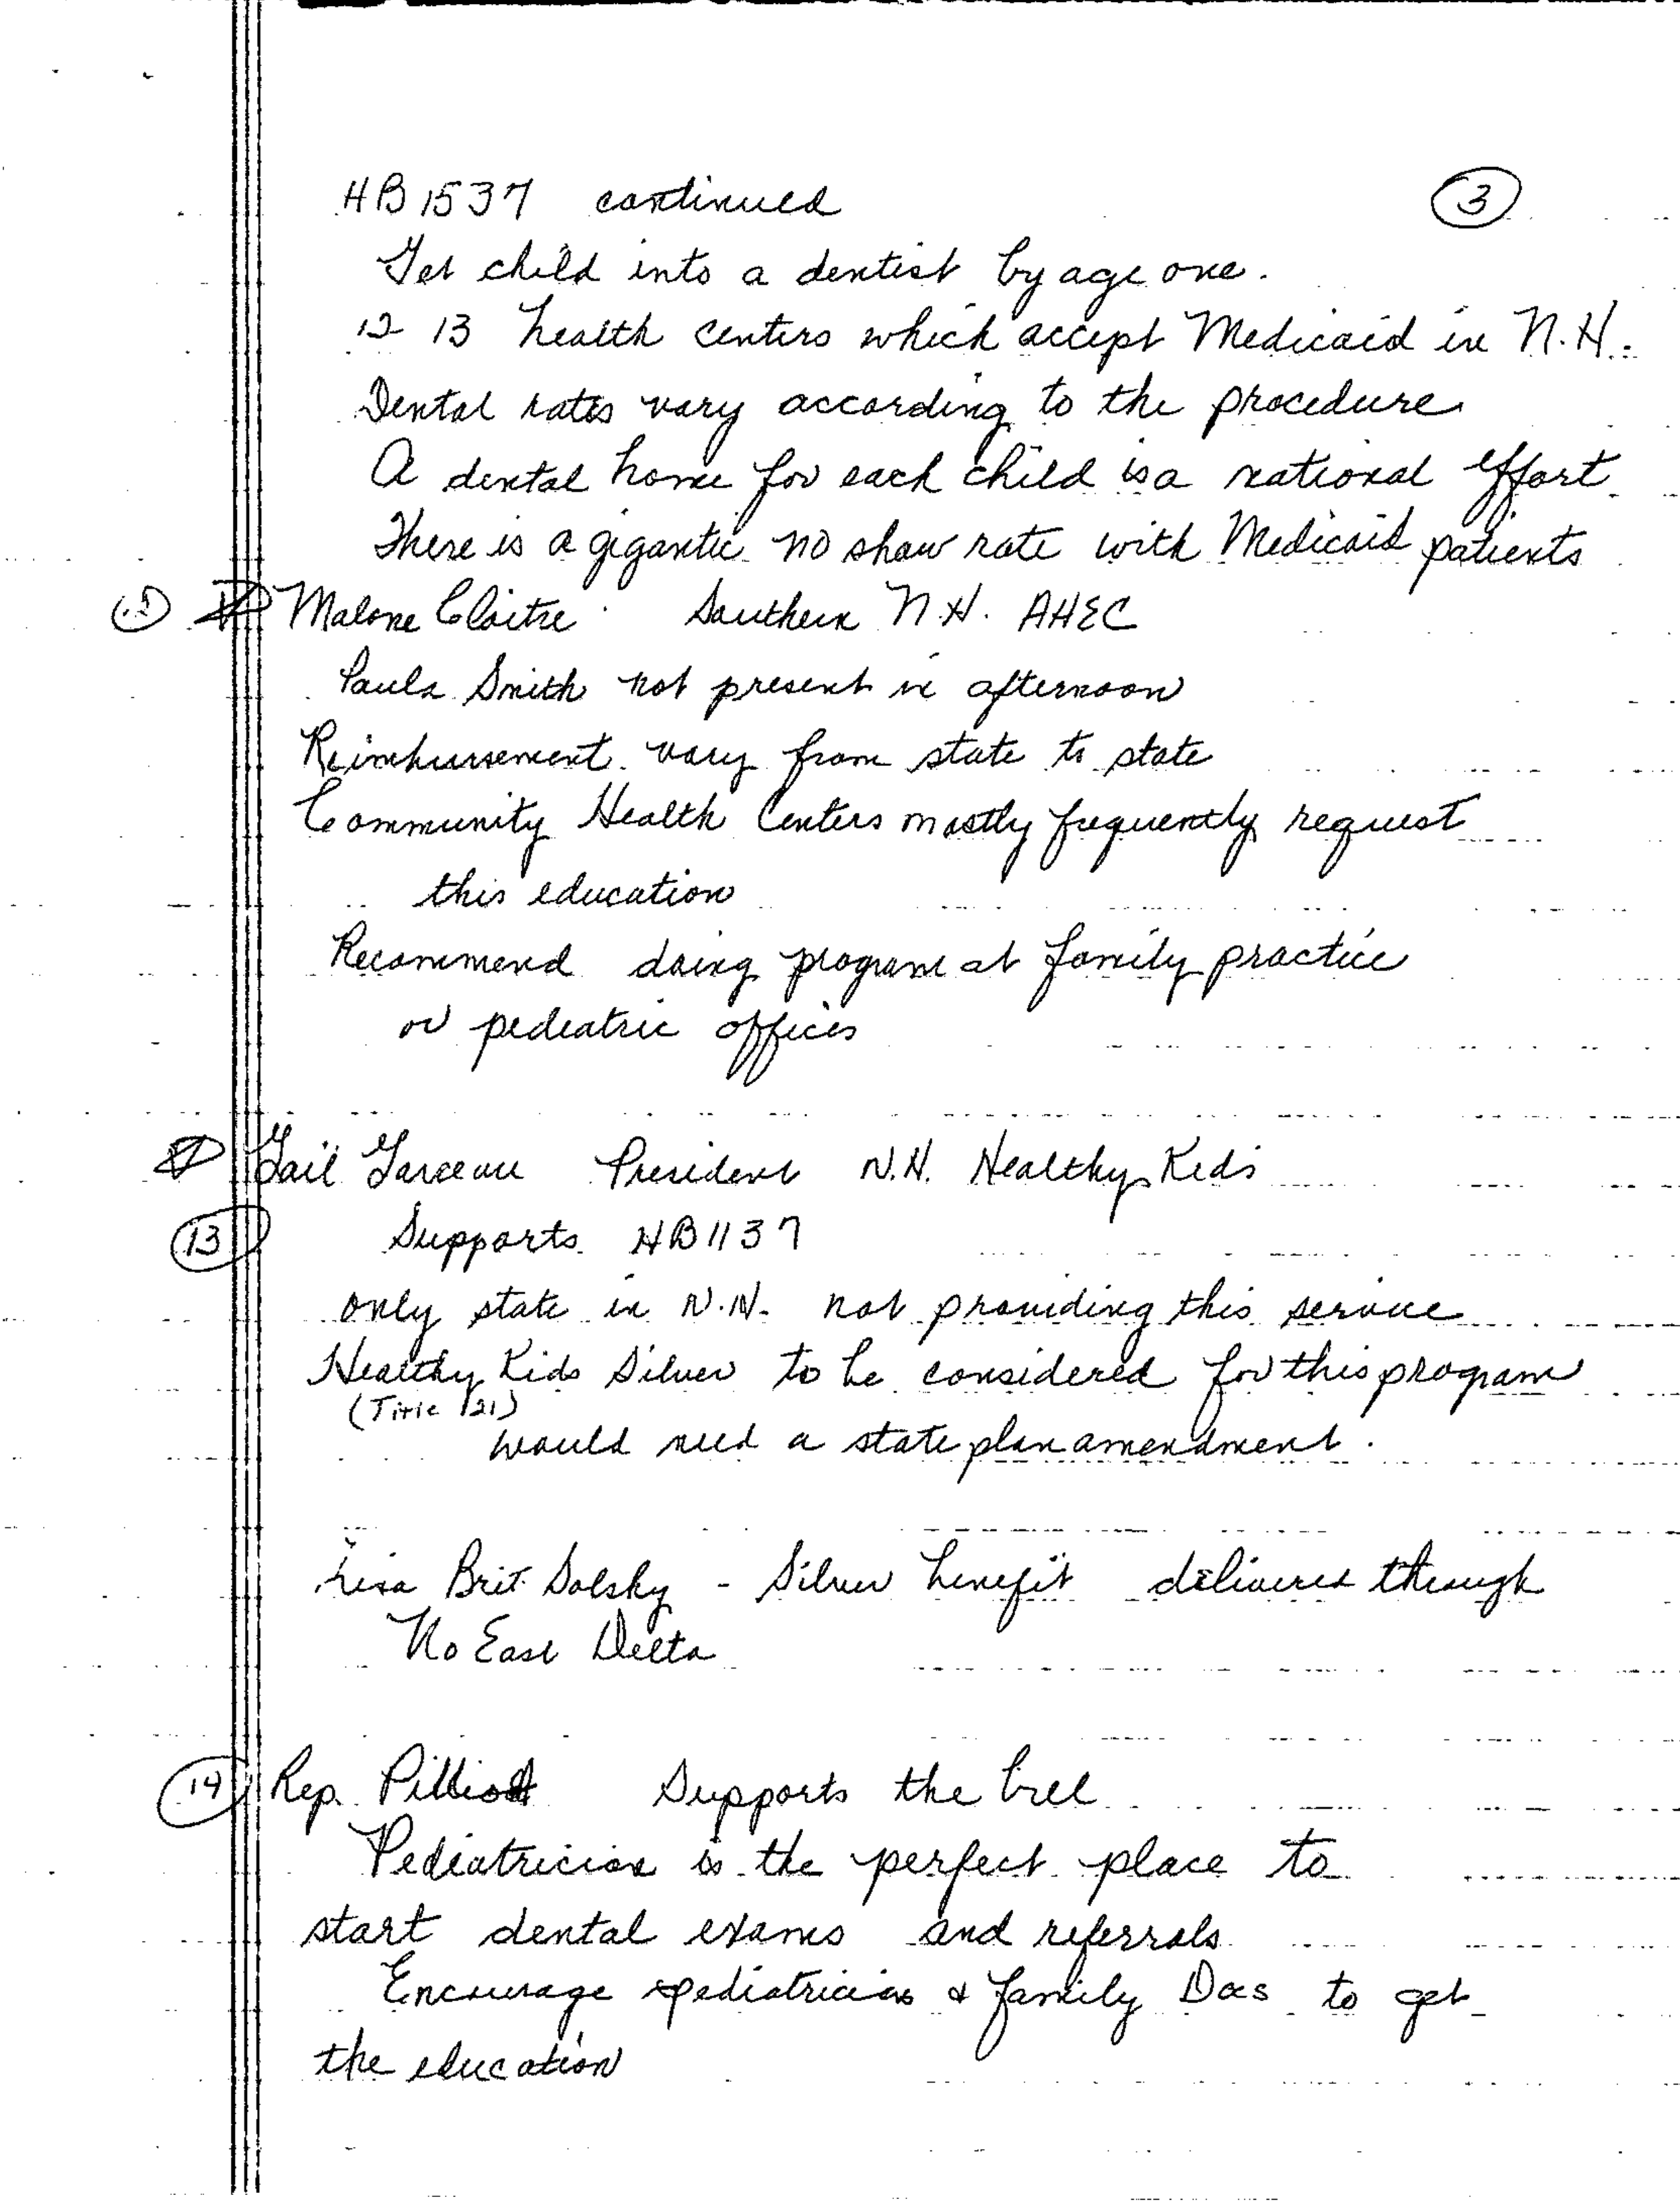 HB 1537 continued
3
Get child into a dentist by age one.
12 13 health centers which accept Medicaid in N.H.
Dental rates vary according to the procedure
A dental home for each child is a national effort
There is a gigantic no show rate with Medicaid patients
Malone Cloitre Southern N.H. AHEC
Paula Smith not present in afternoon
Reimbursement vary from state to state
Community Health Centers mostly frequently request
this education
Recommend doing program at family practice
or pediatric offices
Gail Garceau President N.H. Healthy Kids
13
Supports HB 1137
only state in N.N. not providing this service
Healthy Kids Silver to be considered for this program
(Title 21)
would need a state plan amendment.
Lisa Brit. Solsky - Silver benefit delivered through
No East Delta
14 Rep. Pilliod Supports the bill
Pediatrician is the perfect place to
start dental exams and referrals
Encourage pediatricians & family Docs to get
the education